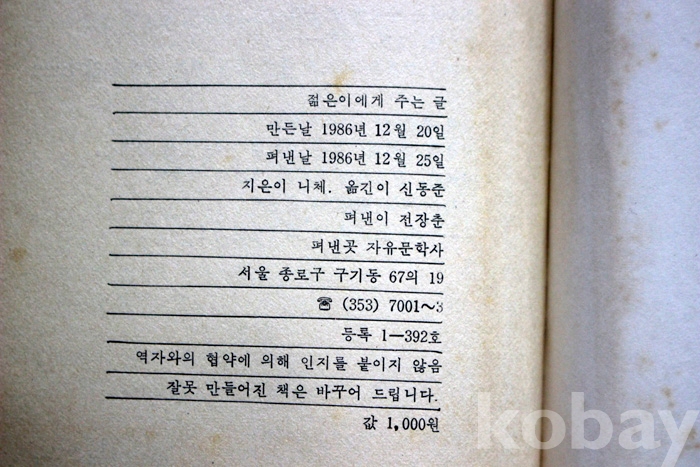 젊은이에게 주는 글
만든날 1986년 12월 20일
펴낸날 1986년 12월 25일
지은이 니체. 옮긴이 신동준
펴낸이 전장춘
펴낸곳 자유문학사
서울 종로구 구기동 67의 19
☎ (353) 7001~3
등록 1—392호
역자와의 협약에 의해 인지를 붙이지 않음
잘못 만들어진 책은 바꾸어 드립니다.
값 1,000원
kobay